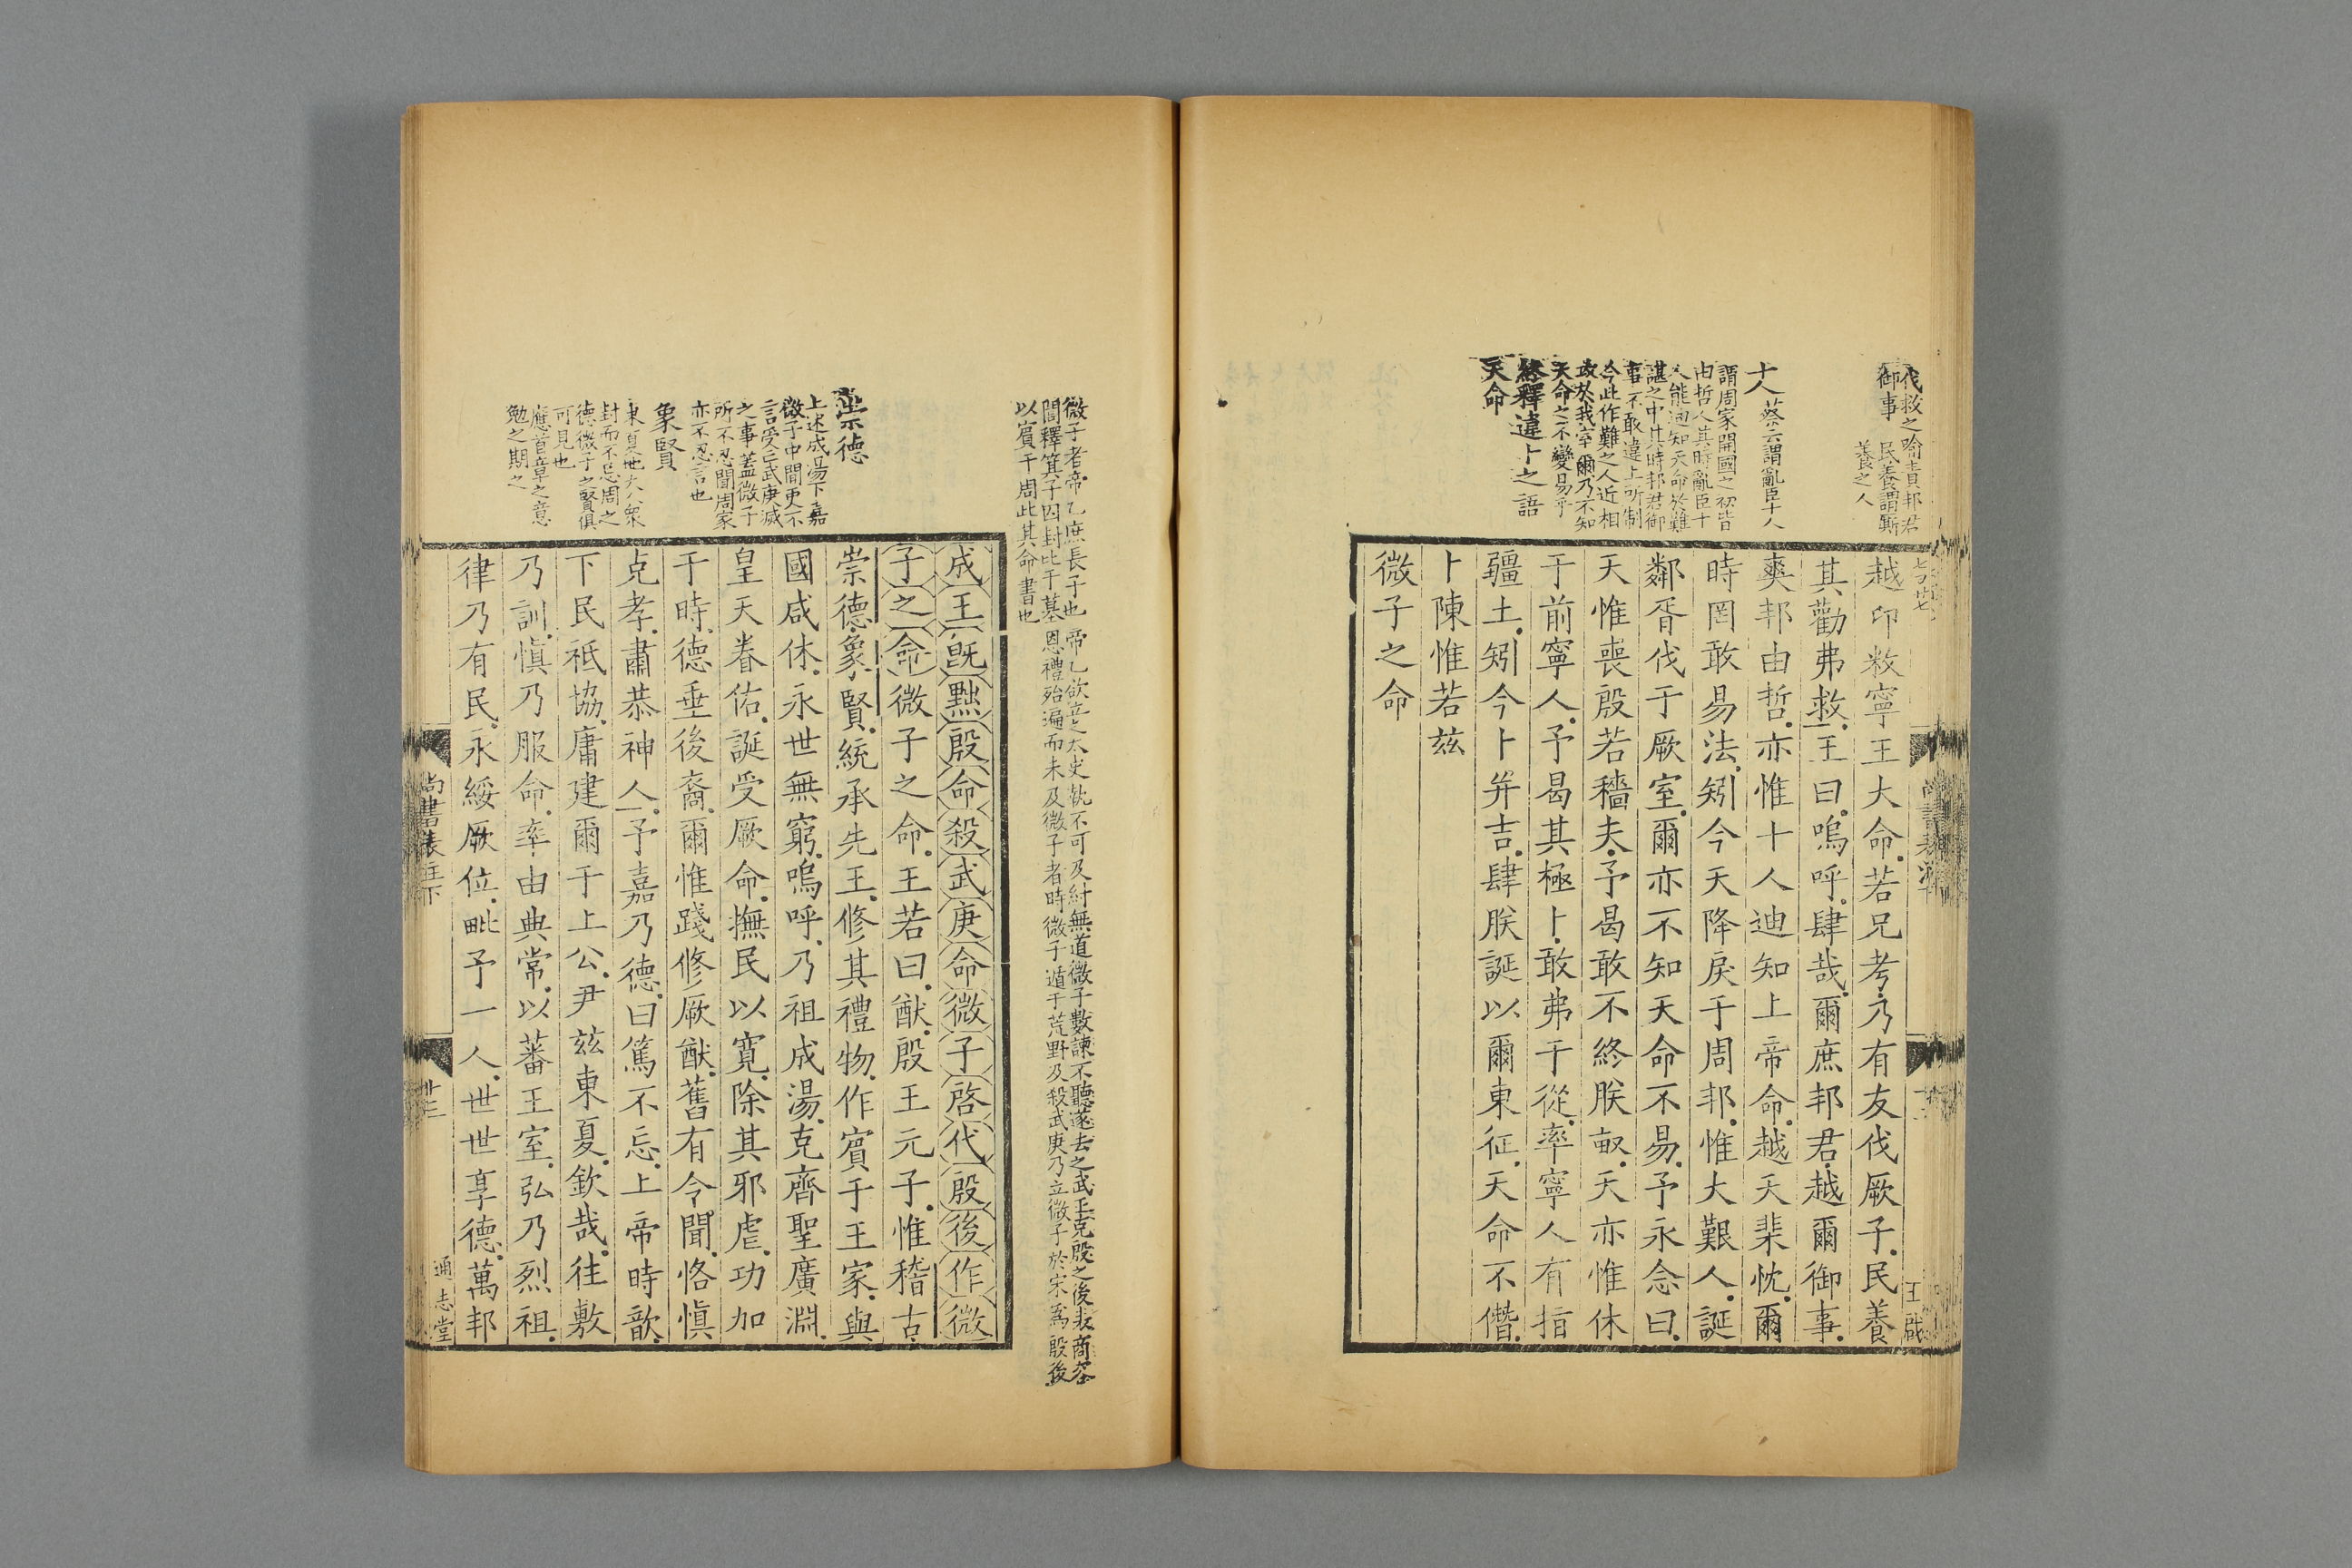 伐救之喻責邦君
御事
民養謂厮
養之人
十人
蔡云謂亂臣十人
謂周家開國之初皆
由哲人其時亂臣十
人能迪知天命於難
諶之中其時邦君御
事不敢違上所制
今此作難之人近相
攻於我室爾乃不知
天命之不變易乎
終釋違卜之語
天命
越卬敉寧王大命若兄考乃有友伐厥子民養
其勸弗救王曰嗚呼肆哉爾庶邦君越爾御事
爽邦由哲亦惟十人迪知上帝命越天棐忱爾
時罔敢易法矧今天降戾于周邦惟大艱人誕
鄰胥伐于厥室爾亦不知天命不易予永念曰
天惟喪殷若穡夫予曷敢不終朕畝天亦惟休
于前寧人予曷其極卜敢弗于從率寧人有指
疆土矧今卜并吉肆朕誕以爾東征天命不僭
卜陳惟若茲
微子之命
微子者帝乙庶長子也帝乙欲立之太史執不可及紂無道微子數諫不聽遂去之武王克殷之後表商容
閭釋箕子囚封比干墓恩禮殆遍而未及微子者時微子遁于荒野及殺武庚乃立微子於宋爲殷後
以賓于周此其命書也
崇德
上述成湯下嘉
微子中間更不
言受亡武庚滅
之事蓋微子
所不忍聞周家
亦不忍言也
象賢
東夏地大人衆
封而不忌周之
德微子之賢俱
可見也
應首章之意
勉之期之
成王既黜殷命殺武庚命微子啓代殷後作微
子之命微子之命王若曰猷殷王元子惟稽古
崇德象賢統承先王修其禮物作賓于王家與
國咸休永世無窮嗚呼乃祖成湯克齊聖廣淵
皇天眷佑誕受厥命撫民以寬除其邪虐功加
于時德垂後裔爾惟踐修厥猷舊有令聞恪慎
克孝肅恭神人予嘉乃德曰篤不忘上帝時歆
下民祗協庸建爾于上公尹茲東夏欽哉往敷
乃訓慎乃服命率由典常以蕃王室弘乃烈祖
律乃有民永綏厥位毗予一人世世享德萬邦
尚書表注下
廿三
通志堂